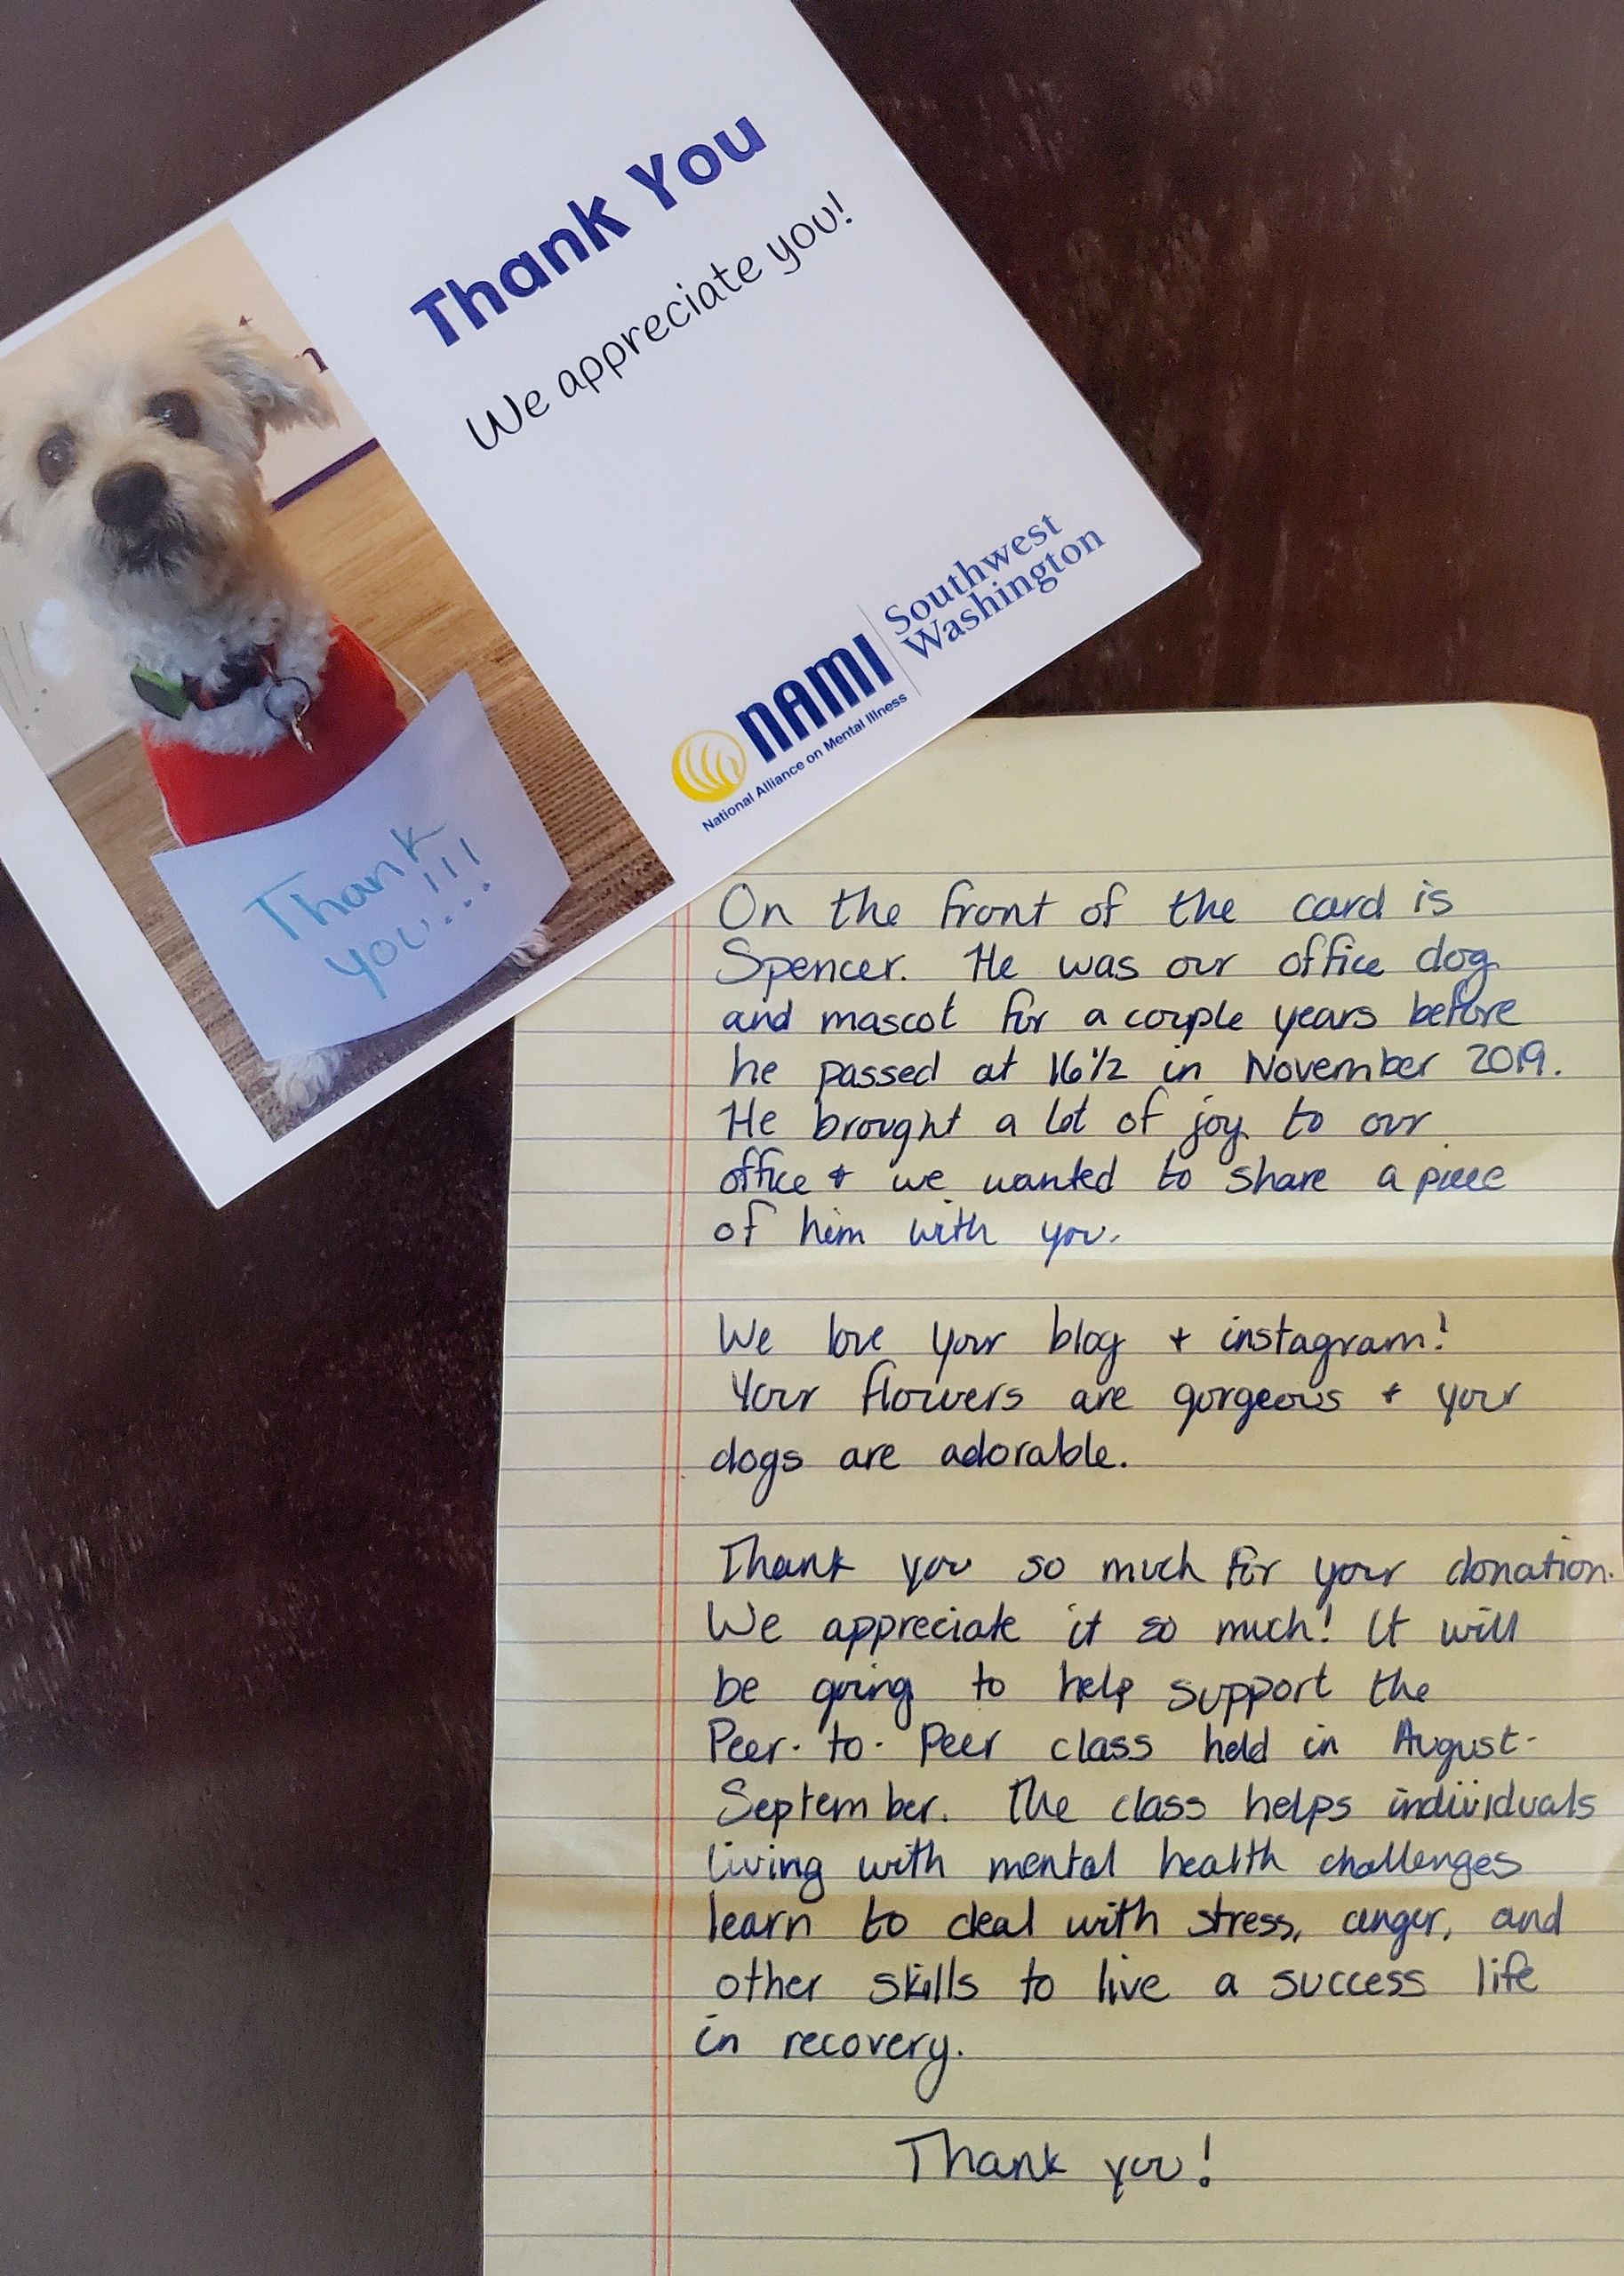 Thank You
We appreciate you!
NAMI
Southwest
Washington
National Alliance on Mental Illness
Thank
you...!!!
On the front of the card is
Spencer. He was our office dog
and mascot for a couple years before
he passed at 16 1/2 in November 2019.
He brought a lot of joy to our
office + we wanted to share a piece
of him with you.
We love your blog + instagram!
Your flowers are gorgeous + your
dogs are adorable.
Thank you so much for your donation.
We appreciate it so much! It will
be going to help support the
Peer-to-Peer class held in August-
September. The class helps individuals
living with mental health challenges
learn to deal with stress, anger, and
other skills to live a success life
in recovery.
Thank you!